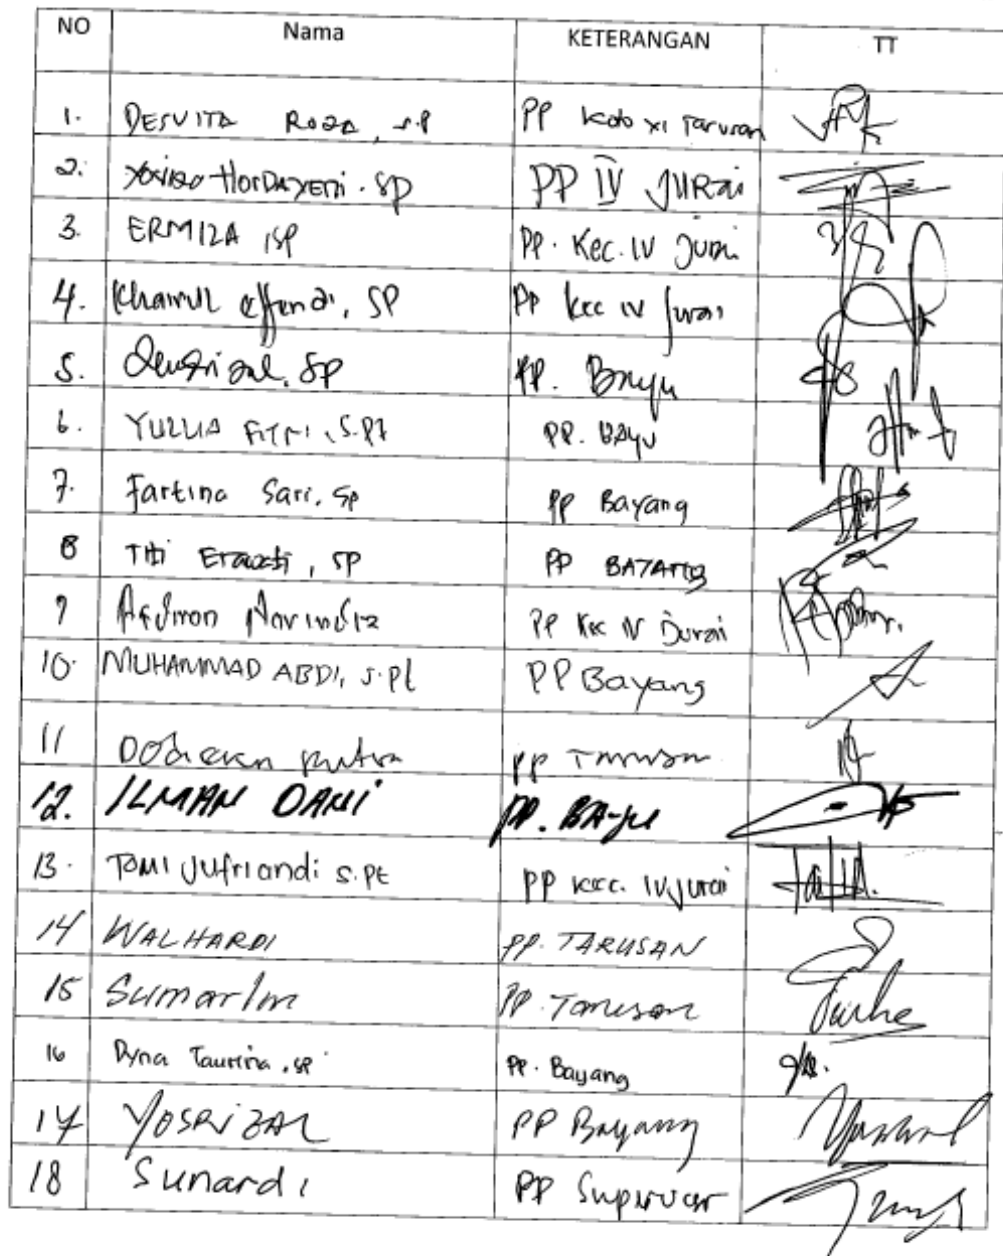 NO Nama KETERANGAN TT
1. DESVITA ROZA, S.P PP Koto XI Tarusan
2. HORDAYENI. SP PP IV JURai
3. ERMIZA, SP PP. Kec. IV Jurai
4. Khairul Effendi, SP PP Kec IV Jurai
5. SP PP. Bayu
6. YULLIA FITRI, S.Pt PP. BAYU
7. Fartina Sari, Sp PP Bayang
8 Titi Erawati, SP PP BAYANG
9 Afdimon Novindra PP Kec IV Jurai
10. MUHAMMAD ABDI, S.Pt PP Bayang
11 putra PP Tarusan
12. ILMAN DANI PP. BA-yu
13. TOMI Jufriandi S.Pt PP kec. IV jurai
14 WALHARDI PP. TARUSAN
15 Sumarlin PP. Tarusan
16 Dyna Taurina, SP PP. Bayang
17 YOSRIZAL PP Bayang
18 Sunardi PP Supervisor